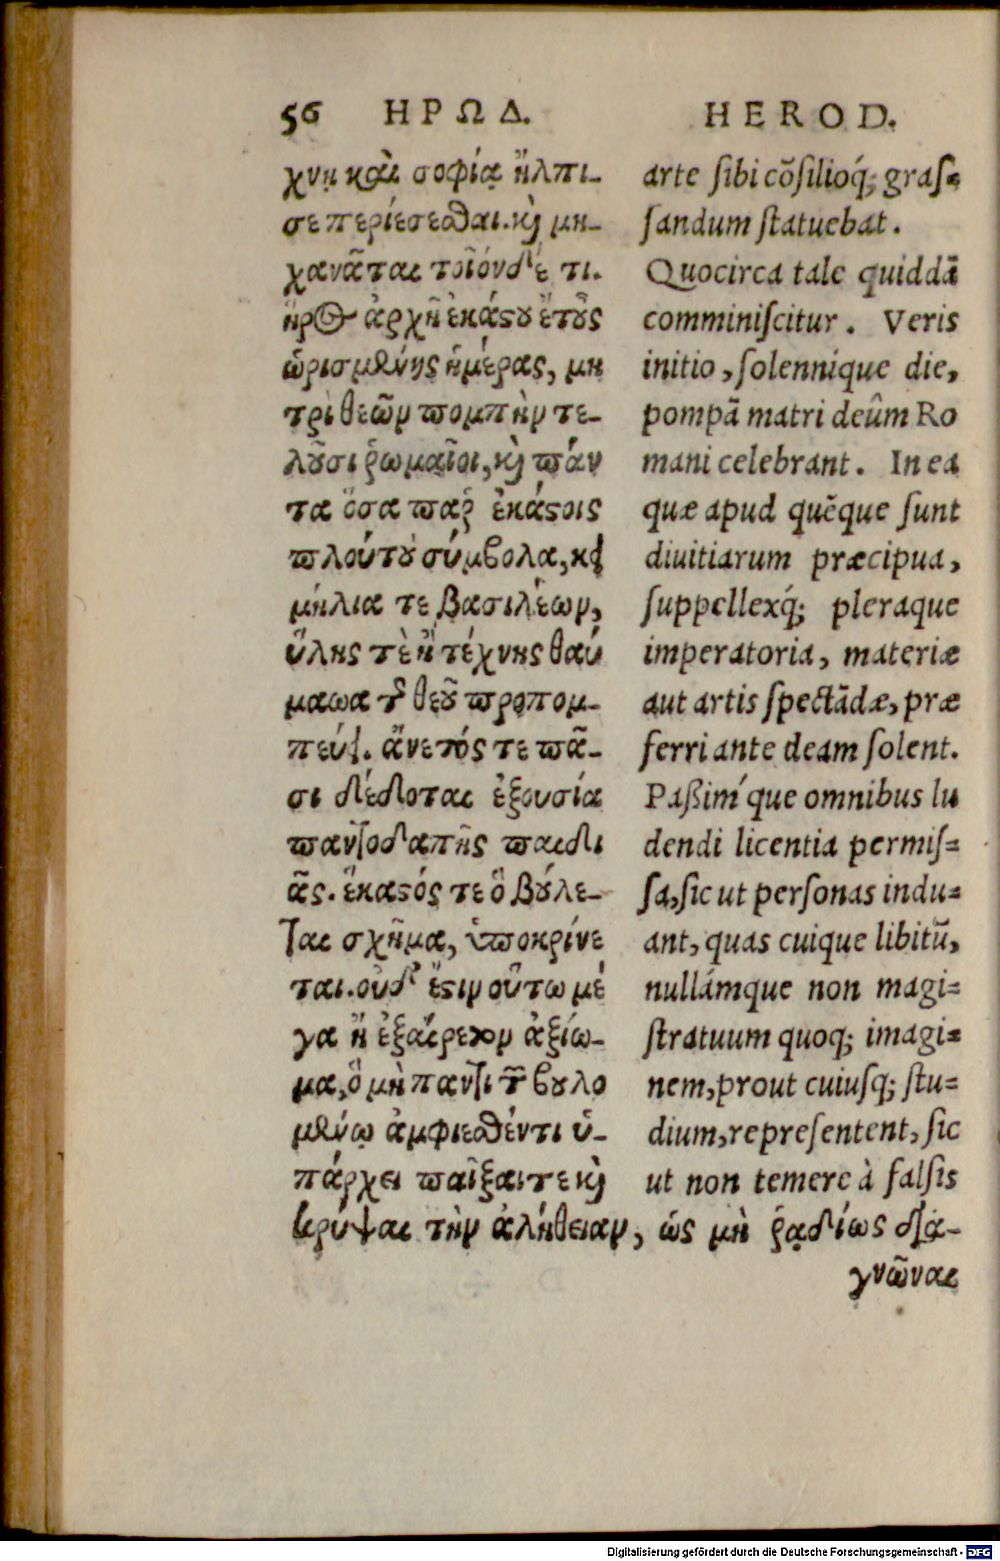 56 ΗΡΩΔ.
χνῃ καὶ σοφίᾳ ἤλπι-
σε περιέσεσθαι. καὶ μη-
χανᾶται τοιόνδε τι.
ἦρος ἀρχῇ ἑκάστου ἔτους
ὡρισμένης ἡμέρας, μη
τρὶ θεῶν πομπὴν τε-
λοῦσι ῥωμαῖοι, καὶ πάν
τα ὅσα παρ' ἑκάστοις
πλούτου σύμβολα, κει
μήλιά τε βασιλέων,
ὕλης τὲ ἢ τέχνης θαύ
ματα τῆς θεοῦ προπομ-
πεύει. ἄνετός τε πᾶ-
σι δέδοται ἐξουσία
παντοδαπῆς παιδι
ᾶς. ἕκαστός τε ὃ βούλε-
ται σχῆμα, ὑποκρίνε
ται. οὐδ' ἔστιν οὕτω μέ
γα ἢ ἐξαίρετον ἀξίω-
μα, ὃ μὴ παντὶ τῷ βουλο
μένῳ ἀμφιεσθέντι ὑ-
πάρχει παῖξαι τε καὶ
κρύψαι τὴν ἀλήθειαν, ὡς μὴ ῥᾳδίως δια-
γνῶναι
HEROD.
arte sibi cōsilioq́; graſ=
ſandum ſtatuebat.
Quocirca tale quiddā
comminiſcitur. Veris
initio, ſolennique die,
pompā matri deûm Ro
mani celebrant. In ea
quæ apud quēque ſunt
diuitiarum præcipua,
ſuppellexq́; pleraque
imperatoria, materiæ
aut artis ſpectādæ, præ
ferri ante deam ſolent.
Paßim´que omnibus lu
dendi licentia permiſ=
ſa, ſic ut perſonas indu=
ant, quas cuique libitū,
nullámque non magi=
ſtratuum quoq; imagi=
nem, prout cuiuſq; ſtu=
dium, repreſentent, ſic
ut non temere à falſis
Digitalisierung gefördert durch die Deutsche Forschungsgemeinschaft - DFG